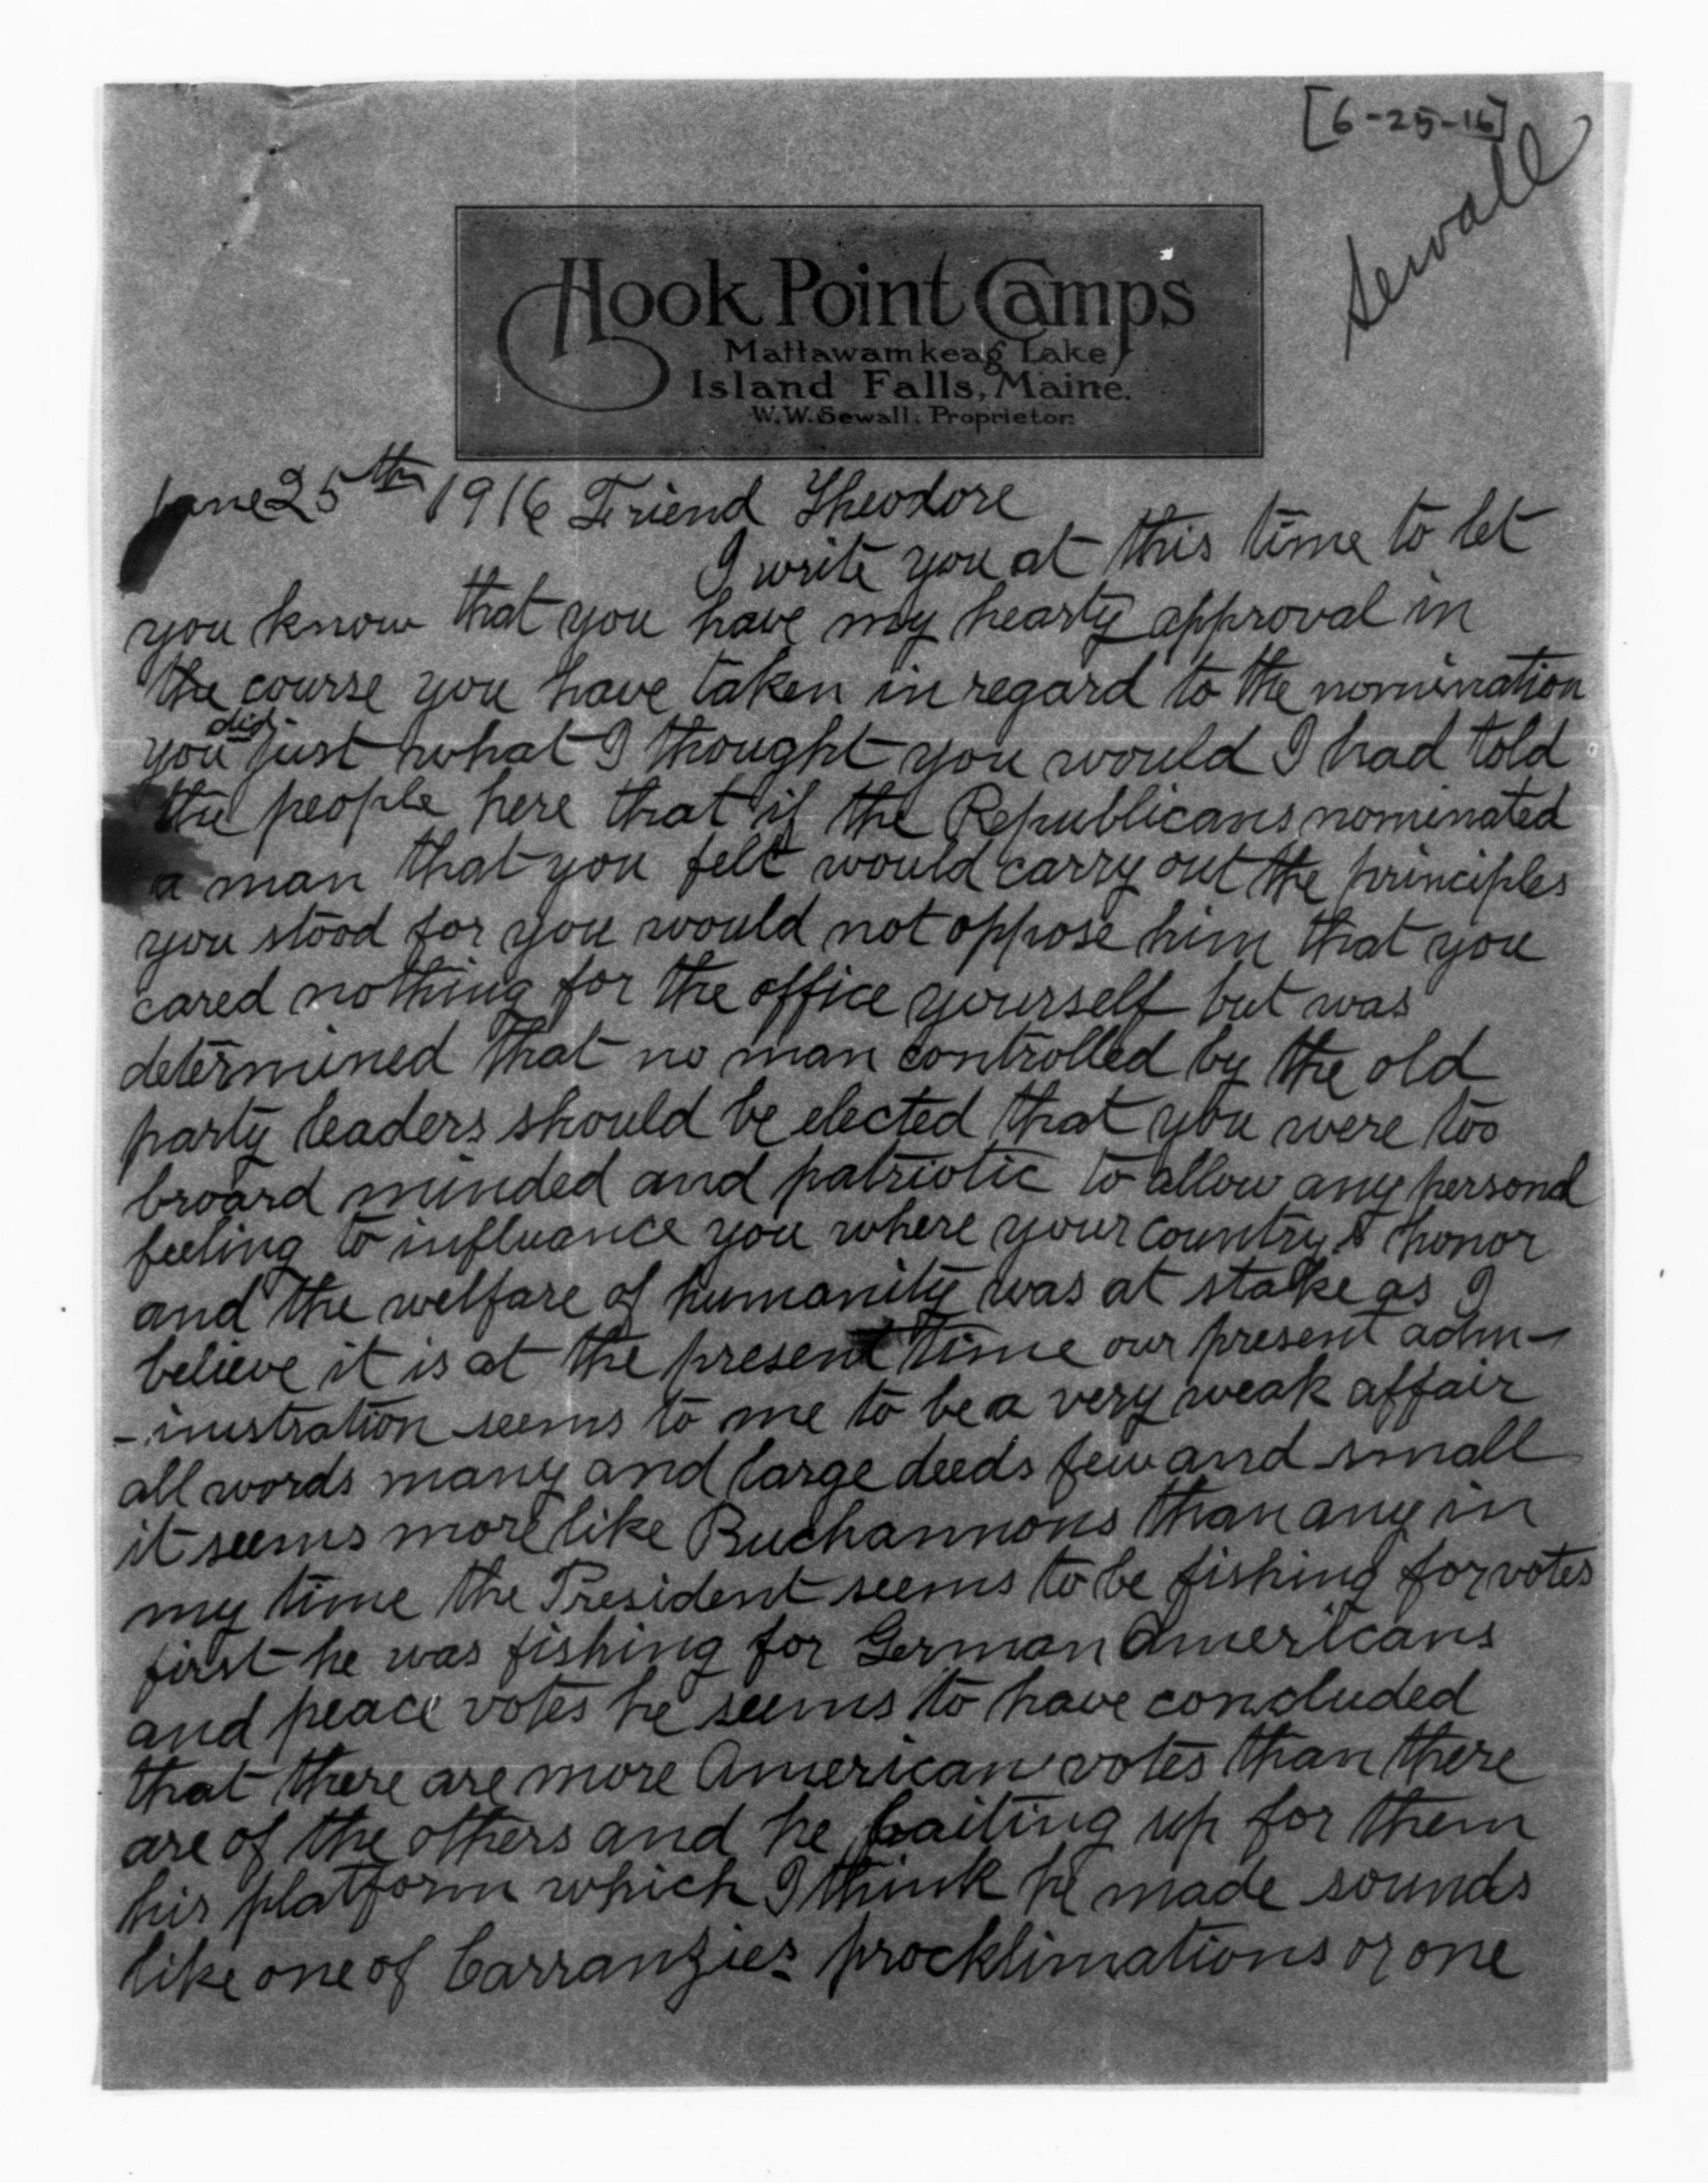 [6-25-16]
Sewall
Hook Point Camps
Mattawamkeag Lake
Island Falls, Maine.
W.W. Sewall. Proprietor.
June 25th 1916 Friend Theodore
I write you at this time to let
you know that you have my hearty approval in
the course you have taken in regard to the nomination
you did just what I thought you would I had told
the people here that if the Republicans nominated
a man that you felt would carry out the principles
you stood for you would not oppose him that you
cared nothing for the office yourself but was
determined that no man controlled by the old
party leaders should be elected that you were too
broard minded and patriotic to allow any personal
feeling to influance you where your country,s honor
and the welfare of humanity was at stake as I
believe it is at the present time our present adm-
-inistration seems to me to be a very weak affair
all words many and large deeds few and small
it seems more like Buchannons than any in
my time the President seems to be fishing for votes
first he was fishing for German Americans
and peace votes he seems to have concluded
that there are more American votes than there
are of the others and he baiting up for them
his platform which I think he made sounds
like one of Carranzies procklimations or one